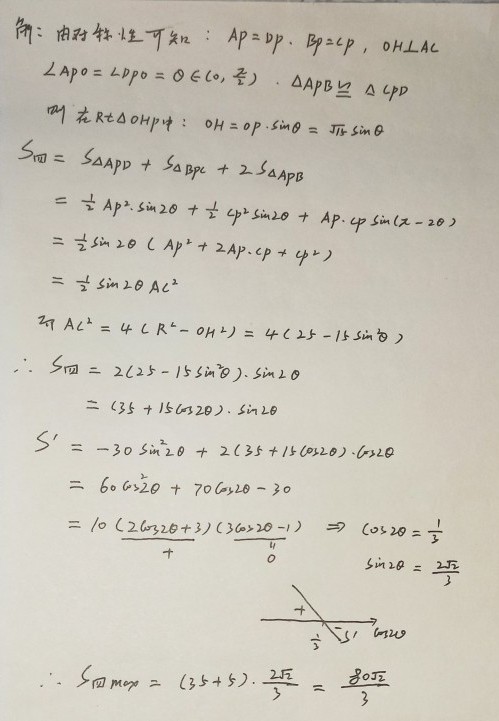 解：由对称性可知：AP=DP. BP=CP, OH⊥AC
∠APO=∠DPO=θ∈(0, π/2). △APB≌△CPD
则在Rt△OHP中：OH=OP·sinθ=√15 sinθ
S四 = S△APD + S△BPC + 2S△APB
= 1/2 AP²·sin2θ + 1/2 CP² sin2θ + AP·CP sin(π-2θ)
= 1/2 sin2θ (AP² + 2AP·CP + CP²)
= 1/2 sin2θ AC²
而 AC² = 4(R²-OH²) = 4(25-15sin²θ)
∴ S四 = 2(25-15sin²θ)·sin2θ
= (35+15cos2θ)·sin2θ
S' = -30sin²2θ + 2(35+15cos2θ)·cos2θ
= 60cos²2θ + 70cos2θ - 30
= 10(2cos2θ+3)(3cos2θ-1) ⇒ cos2θ = 1/3
+ = 0
sin2θ = 2√2/3
+ 1/3 - S' cos2θ
∴ S四max = (35+5)·2√2/3 = 80√2/3